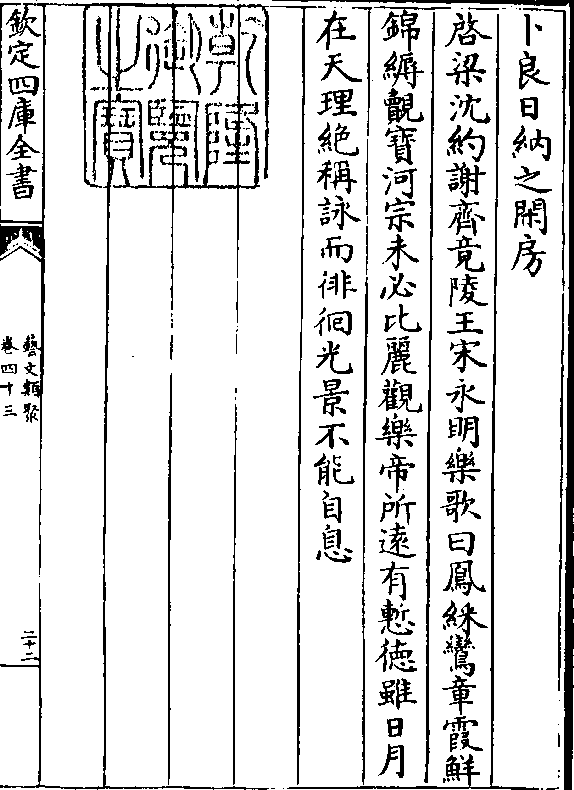 卜良日納之閑房
啓梁沈約謝齊竟陵王宋永明樂歌曰鳳綵鸞章霞鮮
錦縟觀寶河宗未必比麗觀樂帝所遠有慙徳雖日月
在天理絶稱詠而徘徊光景不能自息
乾隆
御覽
之寶
欽定四庫全書
藝文類聚
卷四十三
二十二